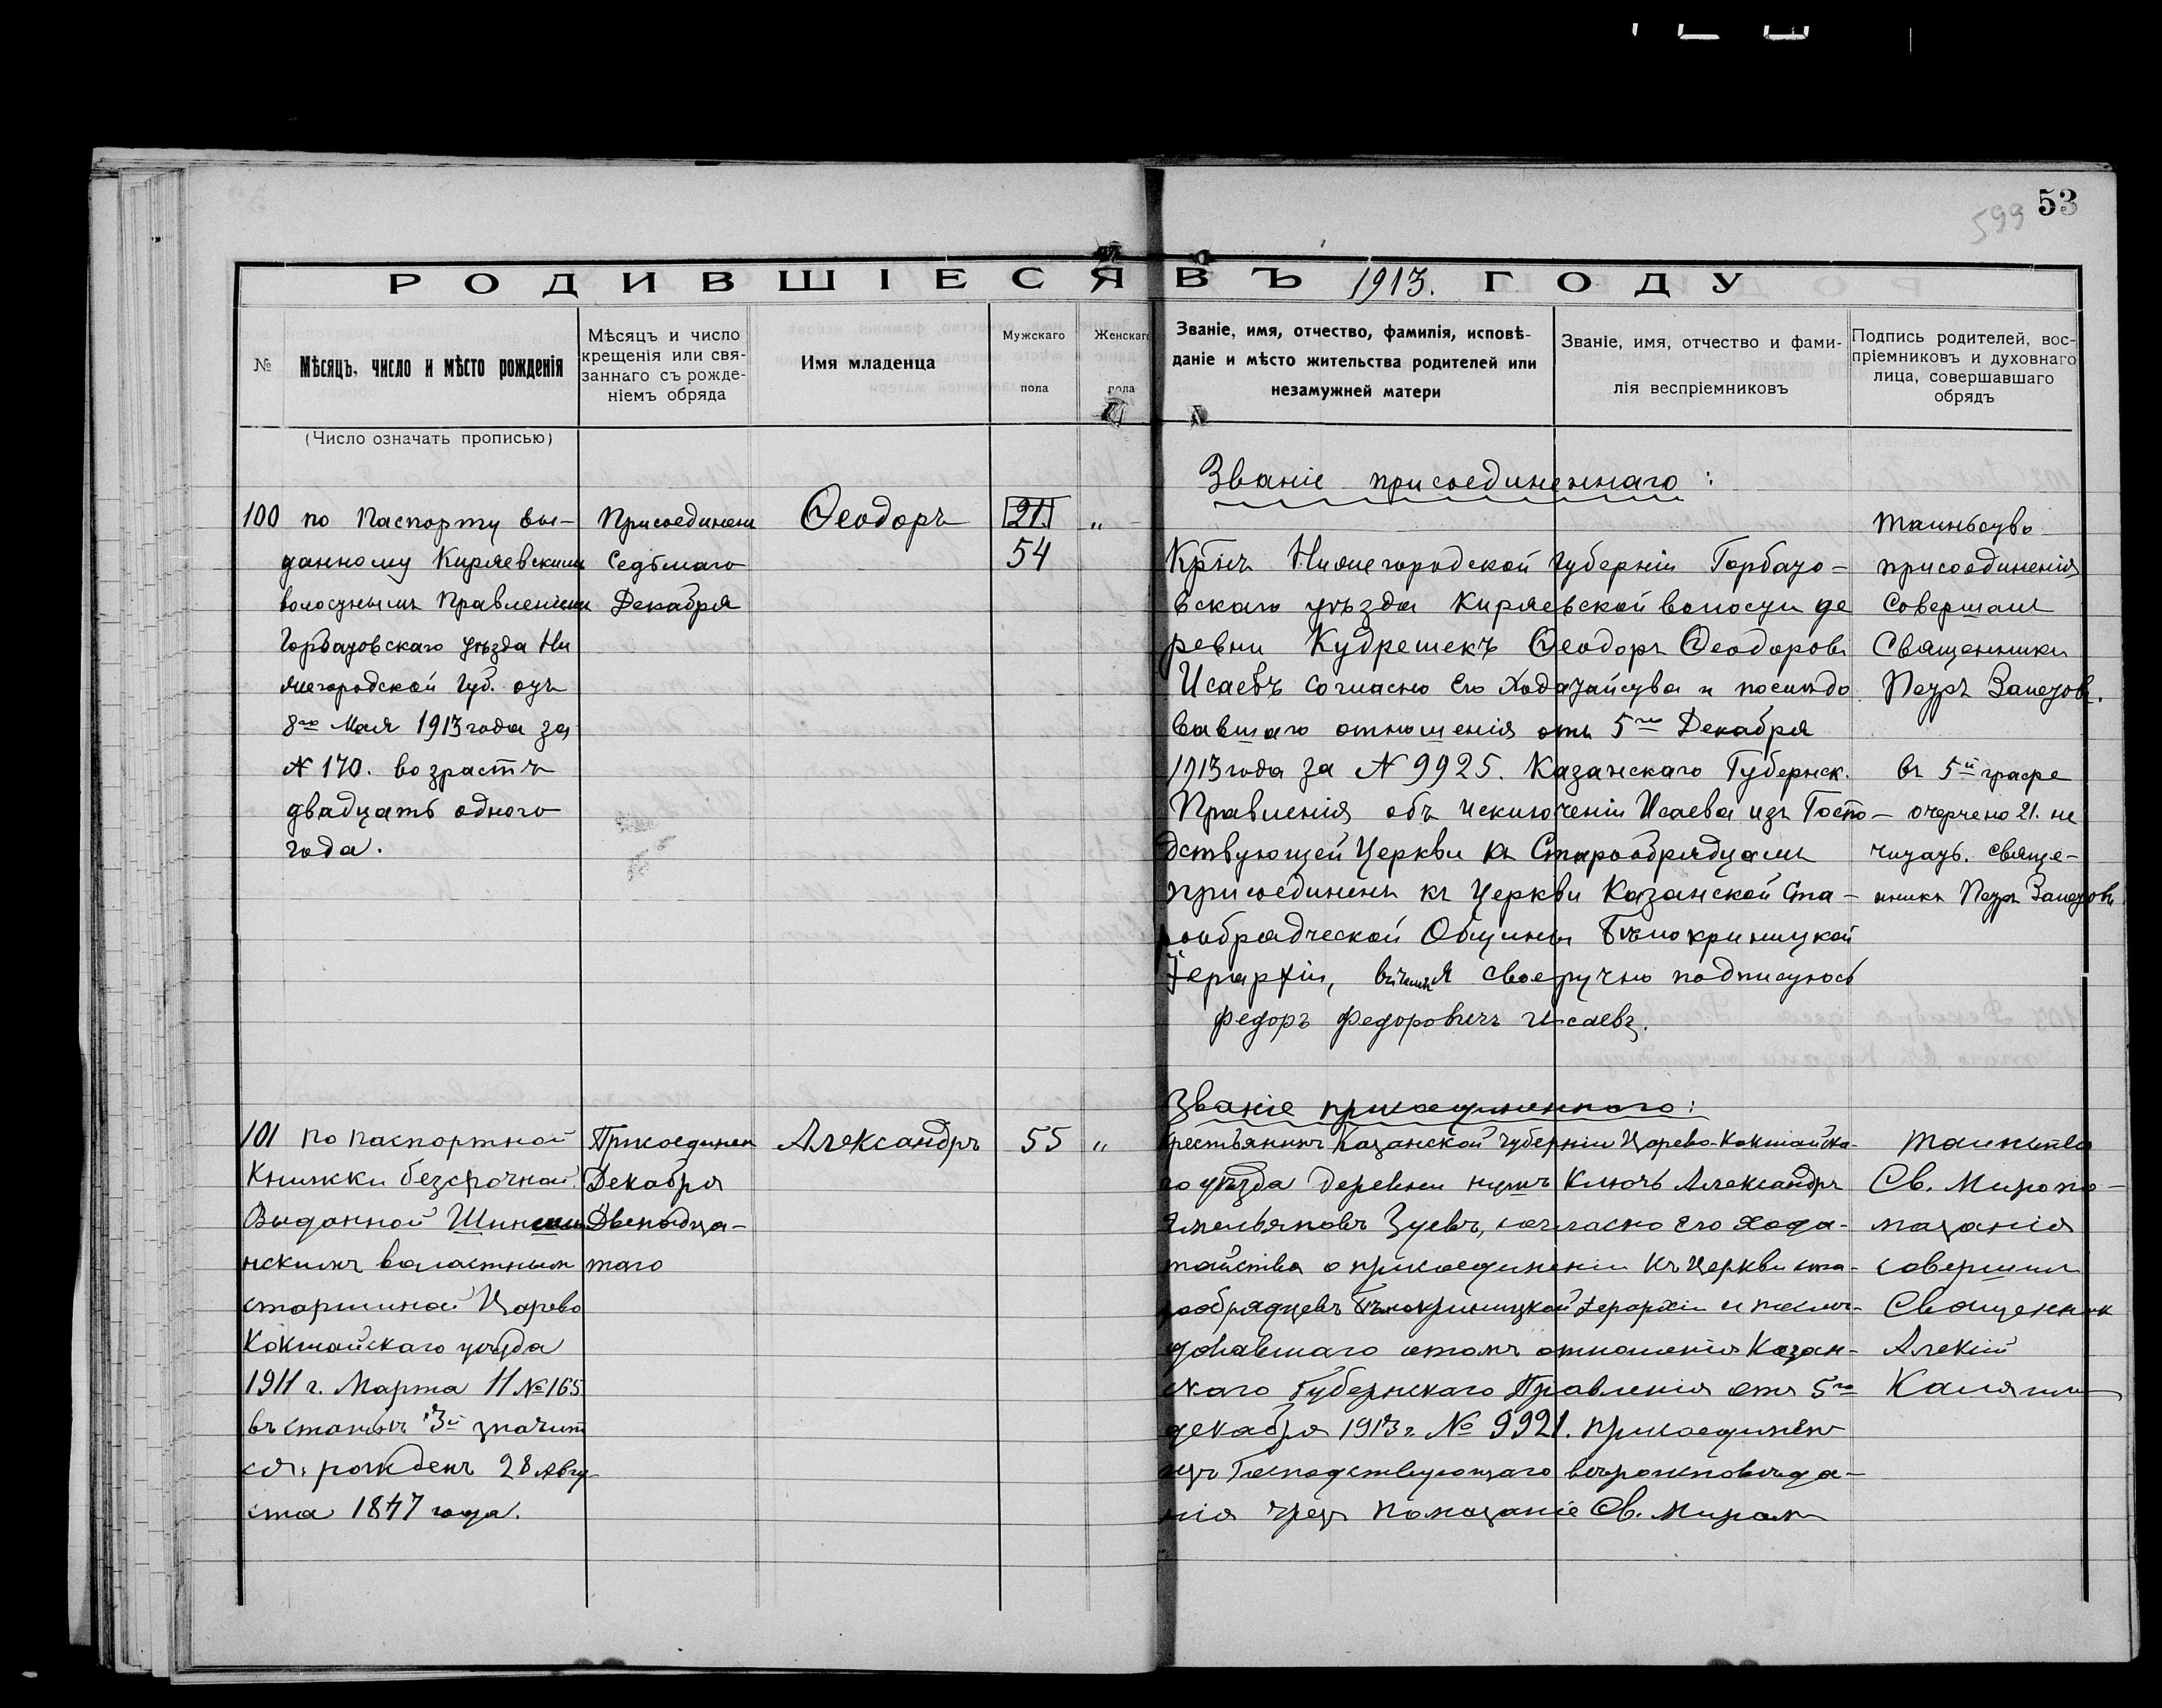 53
599
РОДИВШІЕСЯ ВЪ 1913. ГОДУ
№
Мѣсяцъ, число и мѣсто рожденія
(Число означать прописью)
Мѣсяцъ и число
крещенія или свя-
заннаго съ рожде-
ніемъ обряда
Имя младенца
Мужскаго
пола
Женскаго
пола
Званіе, имя, отчество, фамилія, исповѣ-
даніе и мѣсто жительства родителей или
незамужней матери
Званіе, имя, отчество и фами-
лія веспріемниковъ
Подпись родителей, вос-
пріемниковъ и духовнаго
лица, совершавшаго
обрядъ
100
по Паспорту вы-
данному Киряевскимъ
волостнымъ Правленіемъ
Горбатовскаго уѣзда Ни
жегородской Губ. отъ
8го Мая 1913 года за
№ 170. возрастъ
двадцать одного
года.
Присоединенъ
Седьмаго
Декабря
Ѳеодоръ
21.
54
"
Званіе присоединеннаго:
Кр̃нъ Нижегородской губерніи Горбато-
вскаго уѣзда Киряевской волости де
ревни Кудрешекъ Ѳеодоръ Ѳеодоровъ
Исаевъ согласно его Ходатайства и послѣдо
вавшаго отношенія отъ 5го Декабря
1913 года за № 9925. Казанскаго Губернск.
Правленія объ исключеніи Исаева изъ Госпо-
дствующей Церкви къ Старообрядцамъ
присоединенъ къ Церкви Казанской Ста-
рообрядческой Общины Бѣлокриницкой
Іерархіи, въ чемъ я своеручно подписуюсь
Федоръ Федоровичъ Исаевъ.
таинство
присоединенія
Совершалъ
Священникъ
Петръ Залетовъ.
въ 5й графе
очерчено 21. не
читать. свяще-
нникъ Петръ Залетовъ
101
по паспортной
Книжки безсрочной
Выданной Шинша
нскимъ воластнымъ
старшиной Царево
Кокшайскаго уѣзда
1911 г. Марта 11 № 165
въ статьи 3й значит
ся: рожденъ 28 Авгу-
ста 1847 года.
Присоединен
Декабря
Двенадца-
таго
Александръ
55
"
Званіе присоединеннаго:
Крестьянинъ Казанской губерніи Царево-Кокшайска-
го уѣзда деревни Ключъ Александръ
Емельяновъ Зуевъ, согласно его хода-
тайства о присоединеніи къ Церкви ста-
рообрядцевъ Бѣлокриницкой Іерархіи и послѣ-
довавшаго отомъ отношенія Казан-
скаго Губернскаго Правленія отъ 5го
декабря 1913 г. № 9921. присоединён
изъ Господствующаго вѣроисповѣда-
нія чрезъ помазаніе Св. Миромъ
Таинство
Св. Миропо-
мазанія
совершил
Священник
Алекій
Калягин